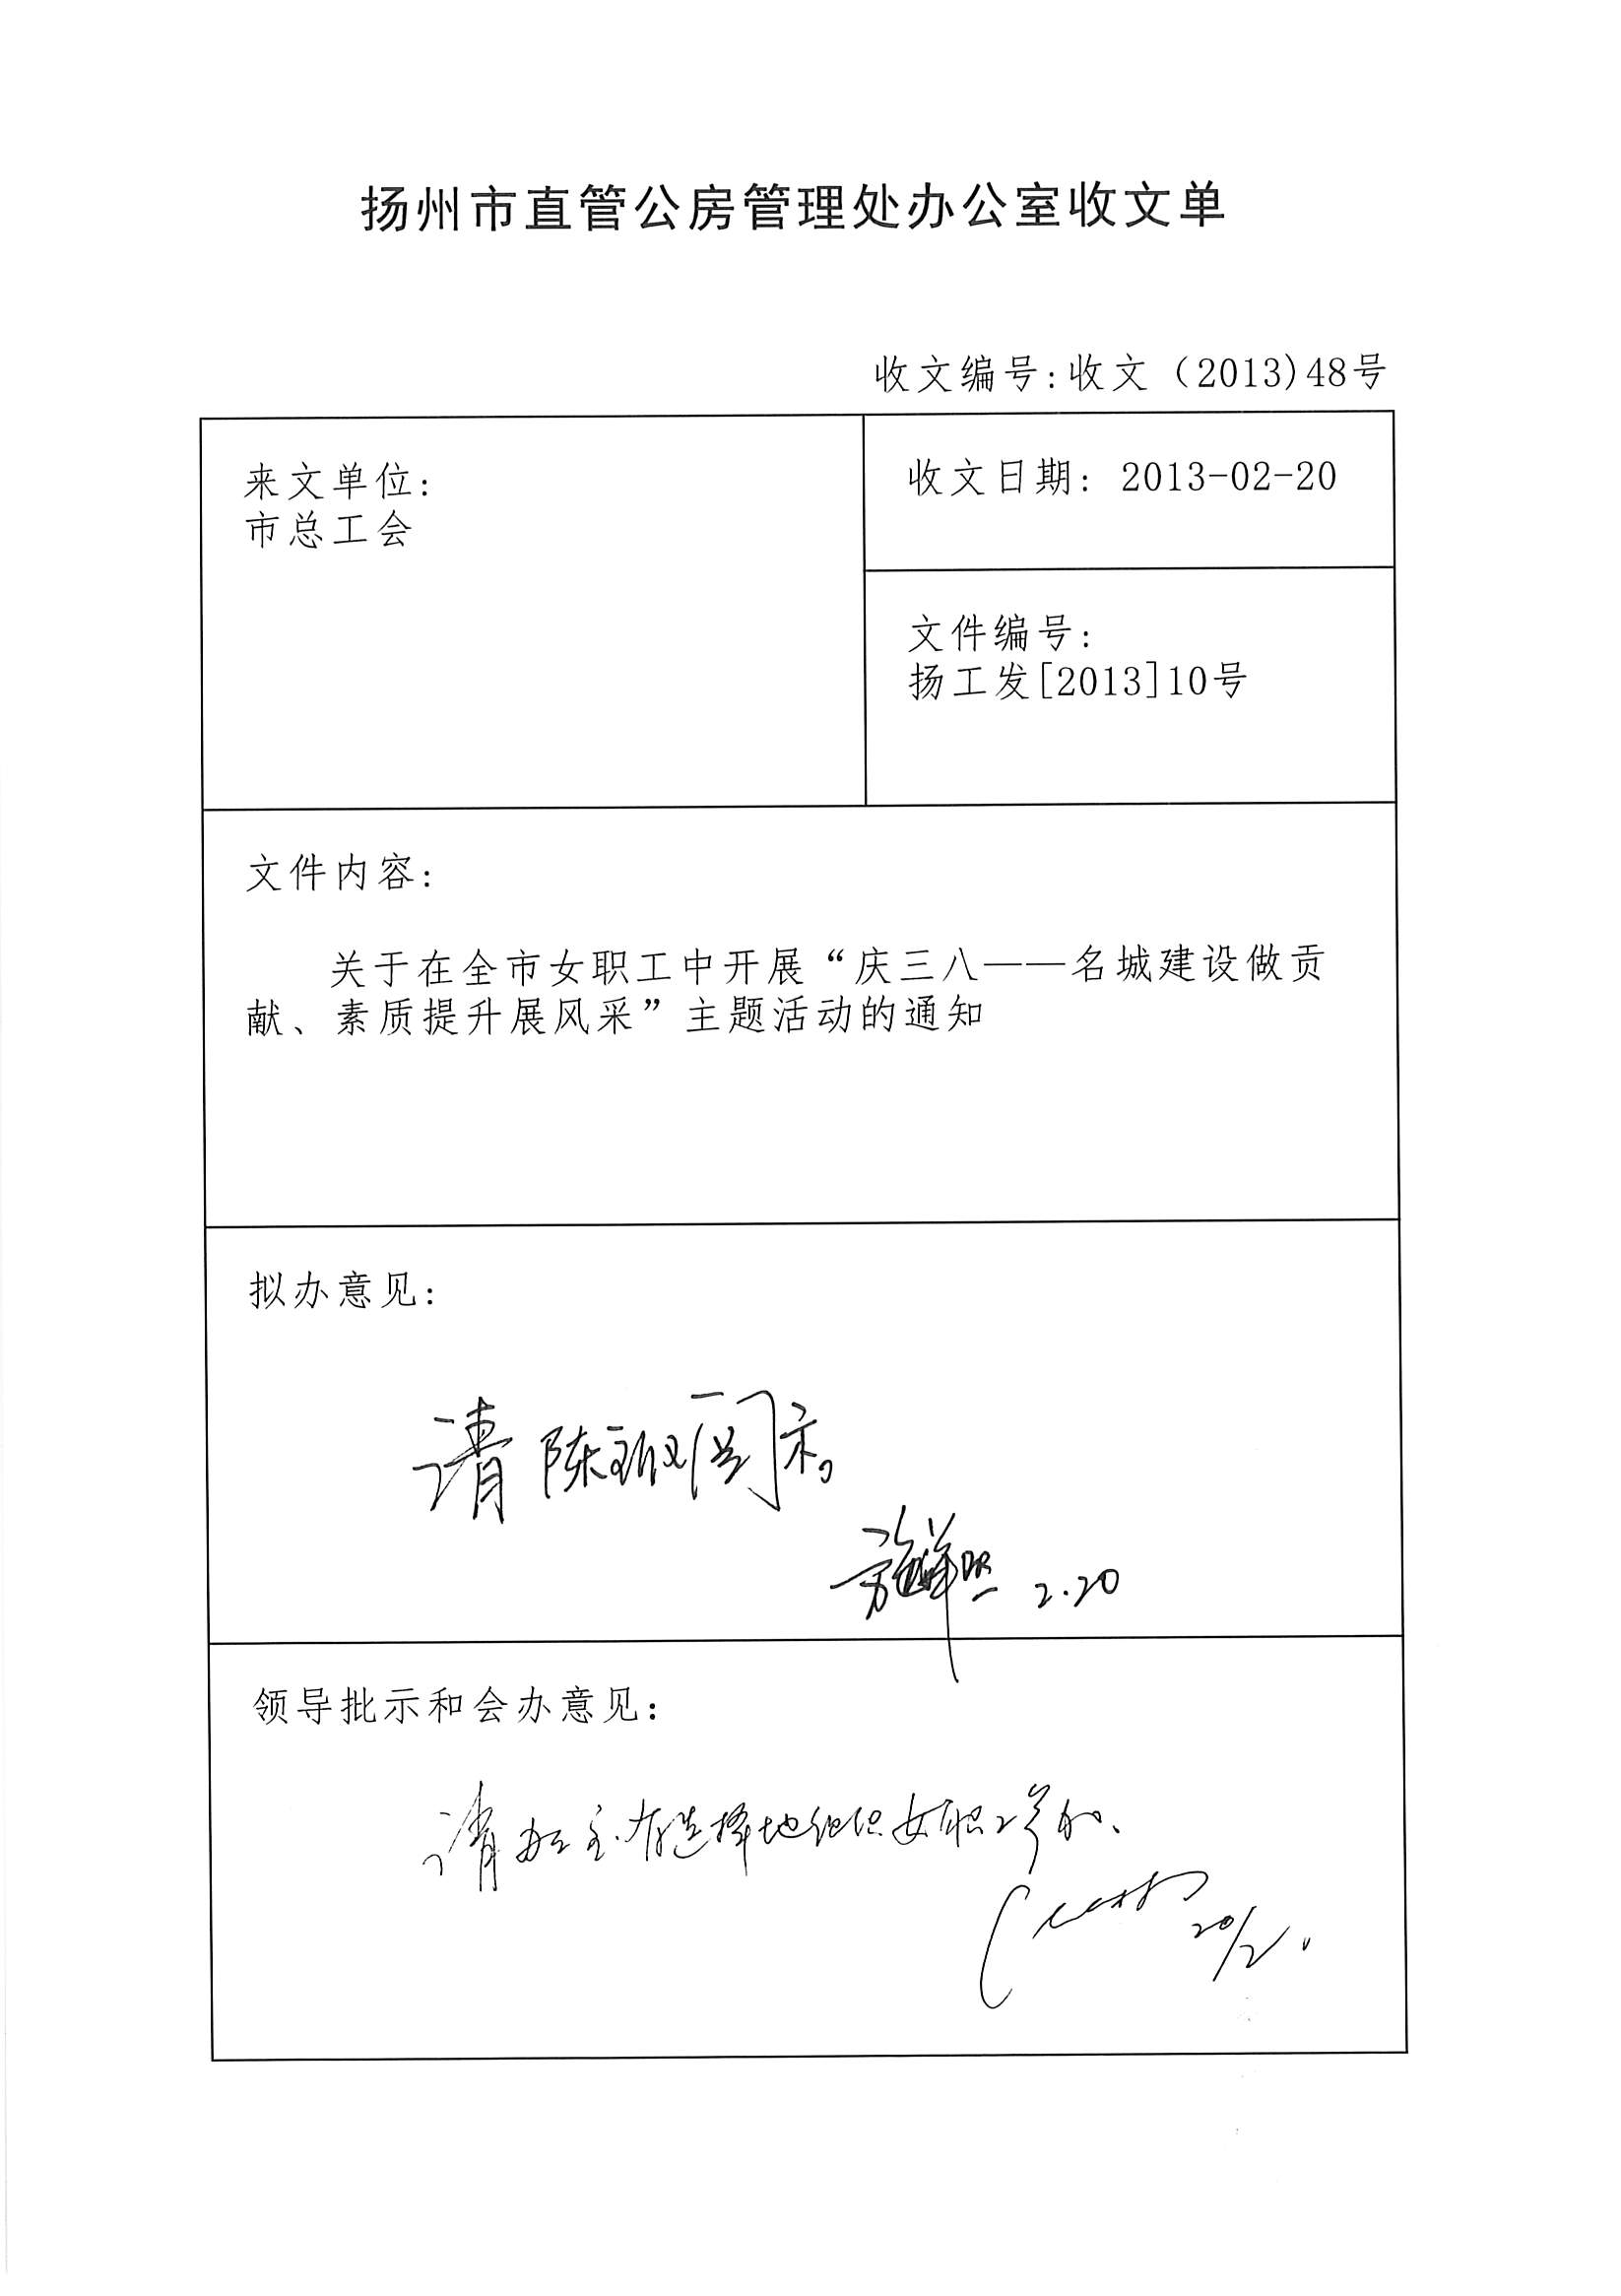 扬州市直管公房管理处办公室收文单
收文编号:收文（2013)48号
来文单位:
市总工会
收文日期: 2013-02-20
文件编号:
扬工发[2013]10号
文件内容:
关于在全市女职工中开展“庆三八——名城建设做贡
献、素质提升展风采”主题活动的通知
拟办意见:
请陈 阅示。
2.20
领导批示和会办意见:
请 有选择地组织女职工参加、
20/2.